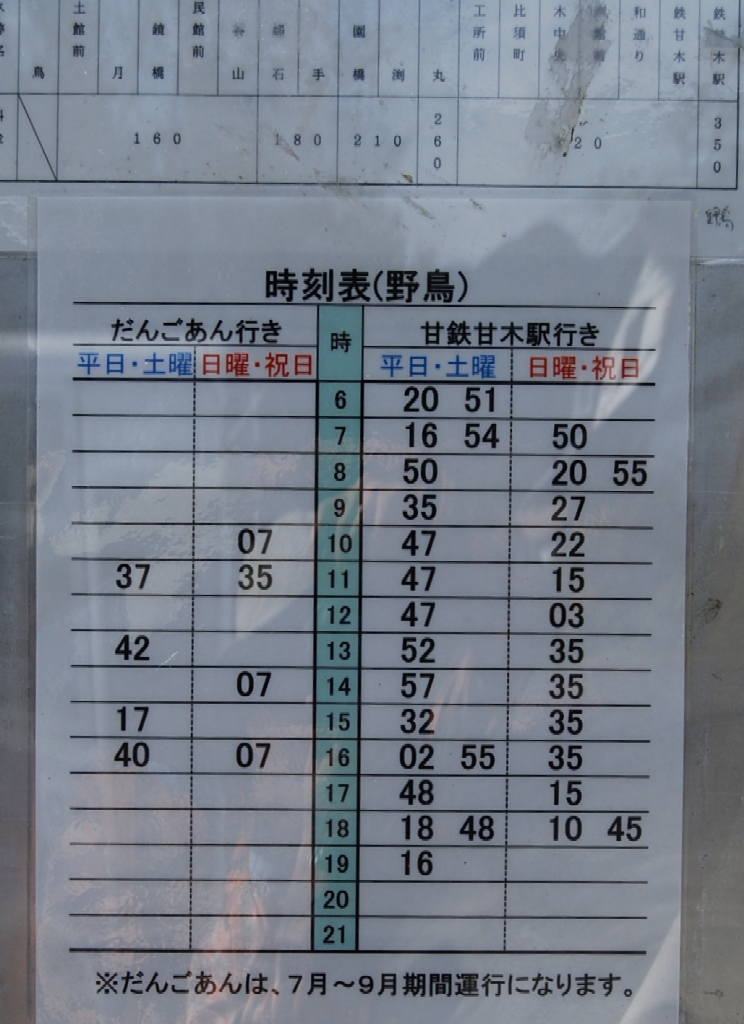 土館前 月 鏡橋 民館前 山 石 手 園橋 渕 丸 工所前 比須町 木中央 和通り 鉄甘木駅 鉄甘木駅
鳥 160 180 210 260 20 350
時刻表(野鳥)
だんごあん行き 時 甘鉄甘木駅行き
平日・土曜 日曜・祝日 平日・土曜 日曜・祝日
6 20 51
7 16 54 50
8 50 20 55
9 35 27
07 10 47 22
37 35 11 47 15
12 47 03
42 13 52 35
07 14 57 35
17 15 32 35
40 07 16 02 55 35
17 48 15
18 18 48 10 45
19 16
20
21
※だんごあんは、7月～9月期間運行になります。